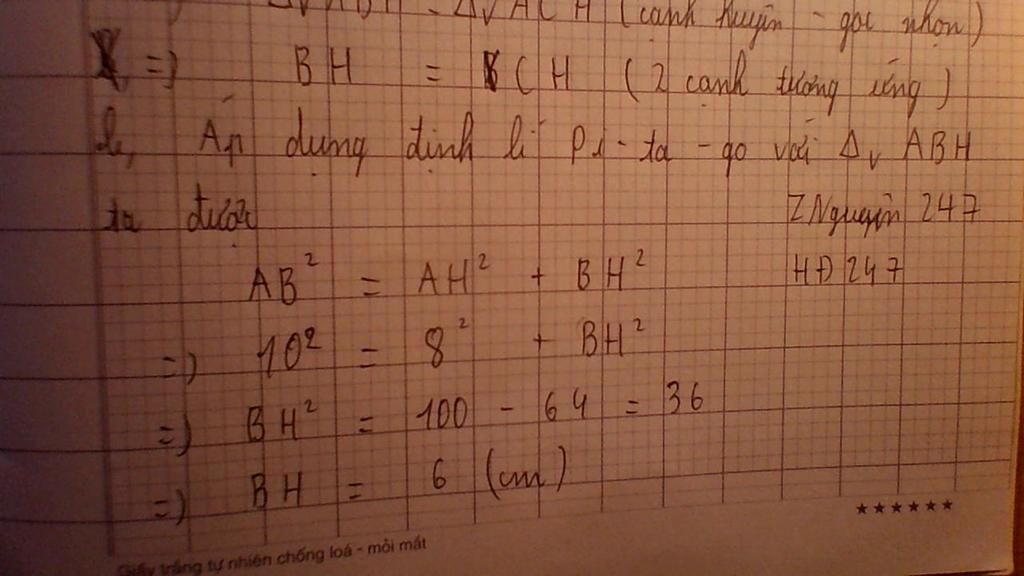 Δv ABH = Δv ACH (cạnh huyền - góc nhọn)
=) BH = CH (2 cạnh tương ứng)
b, Áp dụng định lí Pi-ta-go với Δv ABH
ta được
ZNguyễn 247
AB² = AH² + BH²
HĐ247
=) 10² = 8² + BH²
=) BH² = 100 - 64 = 36
=) BH = 6 (cm)
★★★★★★
Giấy trắng tự nhiên chống loá - mỏi mắt